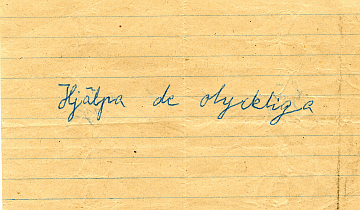 Hjälpa de olyckliga